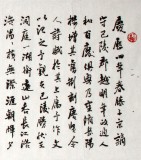 慶曆四年春滕子京謫
守巴陵郡越明年政通人
和百廢俱興乃重修岳陽
樓增其舊制刻唐賢今
人詩賦於其上屬予作文
以記之予觀夫巴陵勝狀在
洞庭一湖銜遠山吞長江浩
浩湯湯橫無際涯朝暉夕